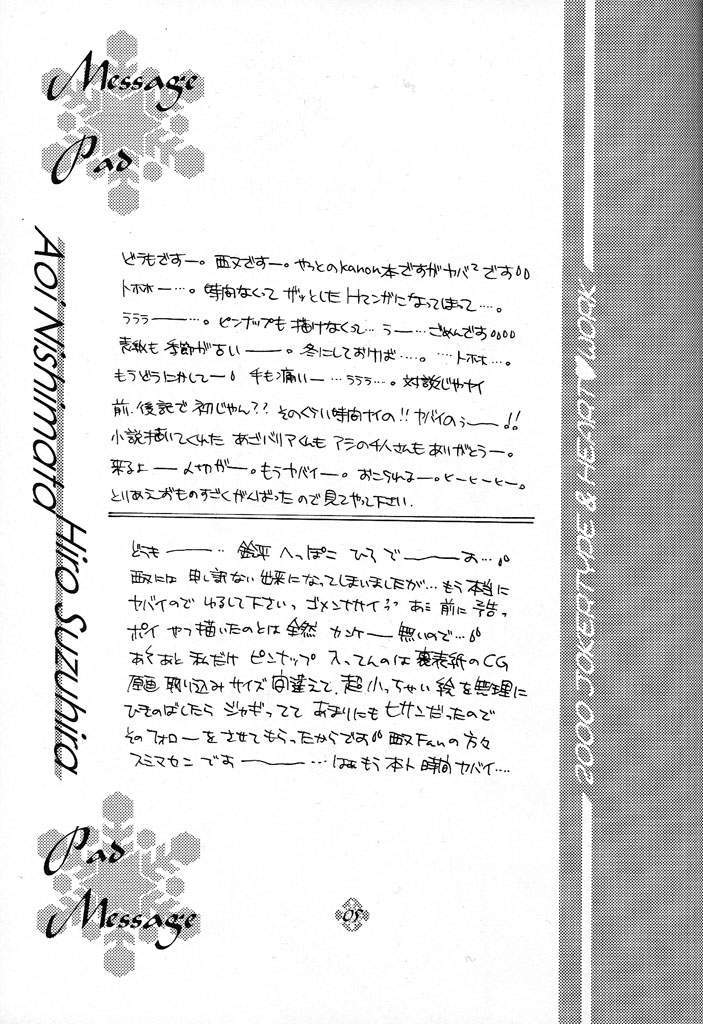 Message
Pad
Aoi Nishimata
どうもですー。西又ですー。やっとのkanon本ですがヤバ²です
トホホー…。時間なくって ザッとしたHマンガになってしまって…。
ラララ———…。ピンナップも 描けなくって… うー…ごめんです
表紙も 季節が古い———。冬にしておけば…。…トホホ…。
もうどうにかしてー 手も痛いー…ラララ…。対談じゃナイ
前、後記で 初じゃん?? そのぐらい時間ナイの!! ヤバイのぅー!!
小説描いてくれた あざバリアくんも アシの千人さんも ありがとうー。
来るよ ——人切がー。もうヤバイー。おこられるー。ヒーヒーヒー。
とりあえずものすごくがんばったので見てやって下さい.
Hiro Suzuhira
どうも———‥ 鈴平 へっぽこ ひろ で———す…
西又には 申し訳ない出来になってしまいましたが…もう本当に
ヤバイので ゆるして下さいっ ゴメンナサイ あ 前に 予告っ
ポイ やつ描いたのとは全然 カンケー 無いので…
あ あと 私だけ ピンナップ 入ってんのは 裏表紙のCG
原画 取り込みサイズ 間違えて、超 小っちゃい 絵を無理に
ひきのばしたら ジャギってて あまりにも ヒサンだったので
そのフォローをさせてもらったからです 西又Fanの 方々
スミマセン です———…はぁもう 本ト 時間 ヤバイ….
Pad
Message
05
2000 JOKERTYPE & HEART♥WORK